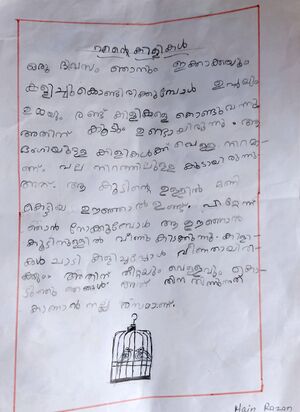 എന്റെ കിളികൾ
ഒരു ദിവസം ഞാനും ഇക്കാക്കയും
കളിച്ചുകൊണ്ടിരിക്കുമ്പോൾ ഉപ്പയും
ഉമ്മയും രണ്ട് കിളികളെ കൊണ്ടുവന്നു
അതിന് കൂടും ഉണ്ടായിരുന്നു. ആ
ഭംഗിയുള്ള കിളികൾക്ക് വെള്ള നിറമാ-
ണ്. പല നിറത്തിലുള്ള കൂടായിരുന്നു
അത്. ആ കൂടിന്റെ ഉള്ളിൽ മണി
കെട്ടിയ ഊഞ്ഞാൽ ഉണ്ട്. പിറ്റേന്ന്
ഞാൻ നോക്കുമ്പോൾ ആ ഊഞ്ഞാൽ
കൂടിനുള്ളിൽ വീണു കിടക്കുന്നു. കിളി-
കൾ ചാടി കളിച്ചപ്പോൾ വീണതായിരി-
ക്കും. അതിന് തീറ്റയും വെള്ളവും കൊ-
ടുത്തു ഞങ്ങൾ. അത് തിന്നുന്നത്
കാണാൻ നല്ല രസമാണ്.
Hain Razan